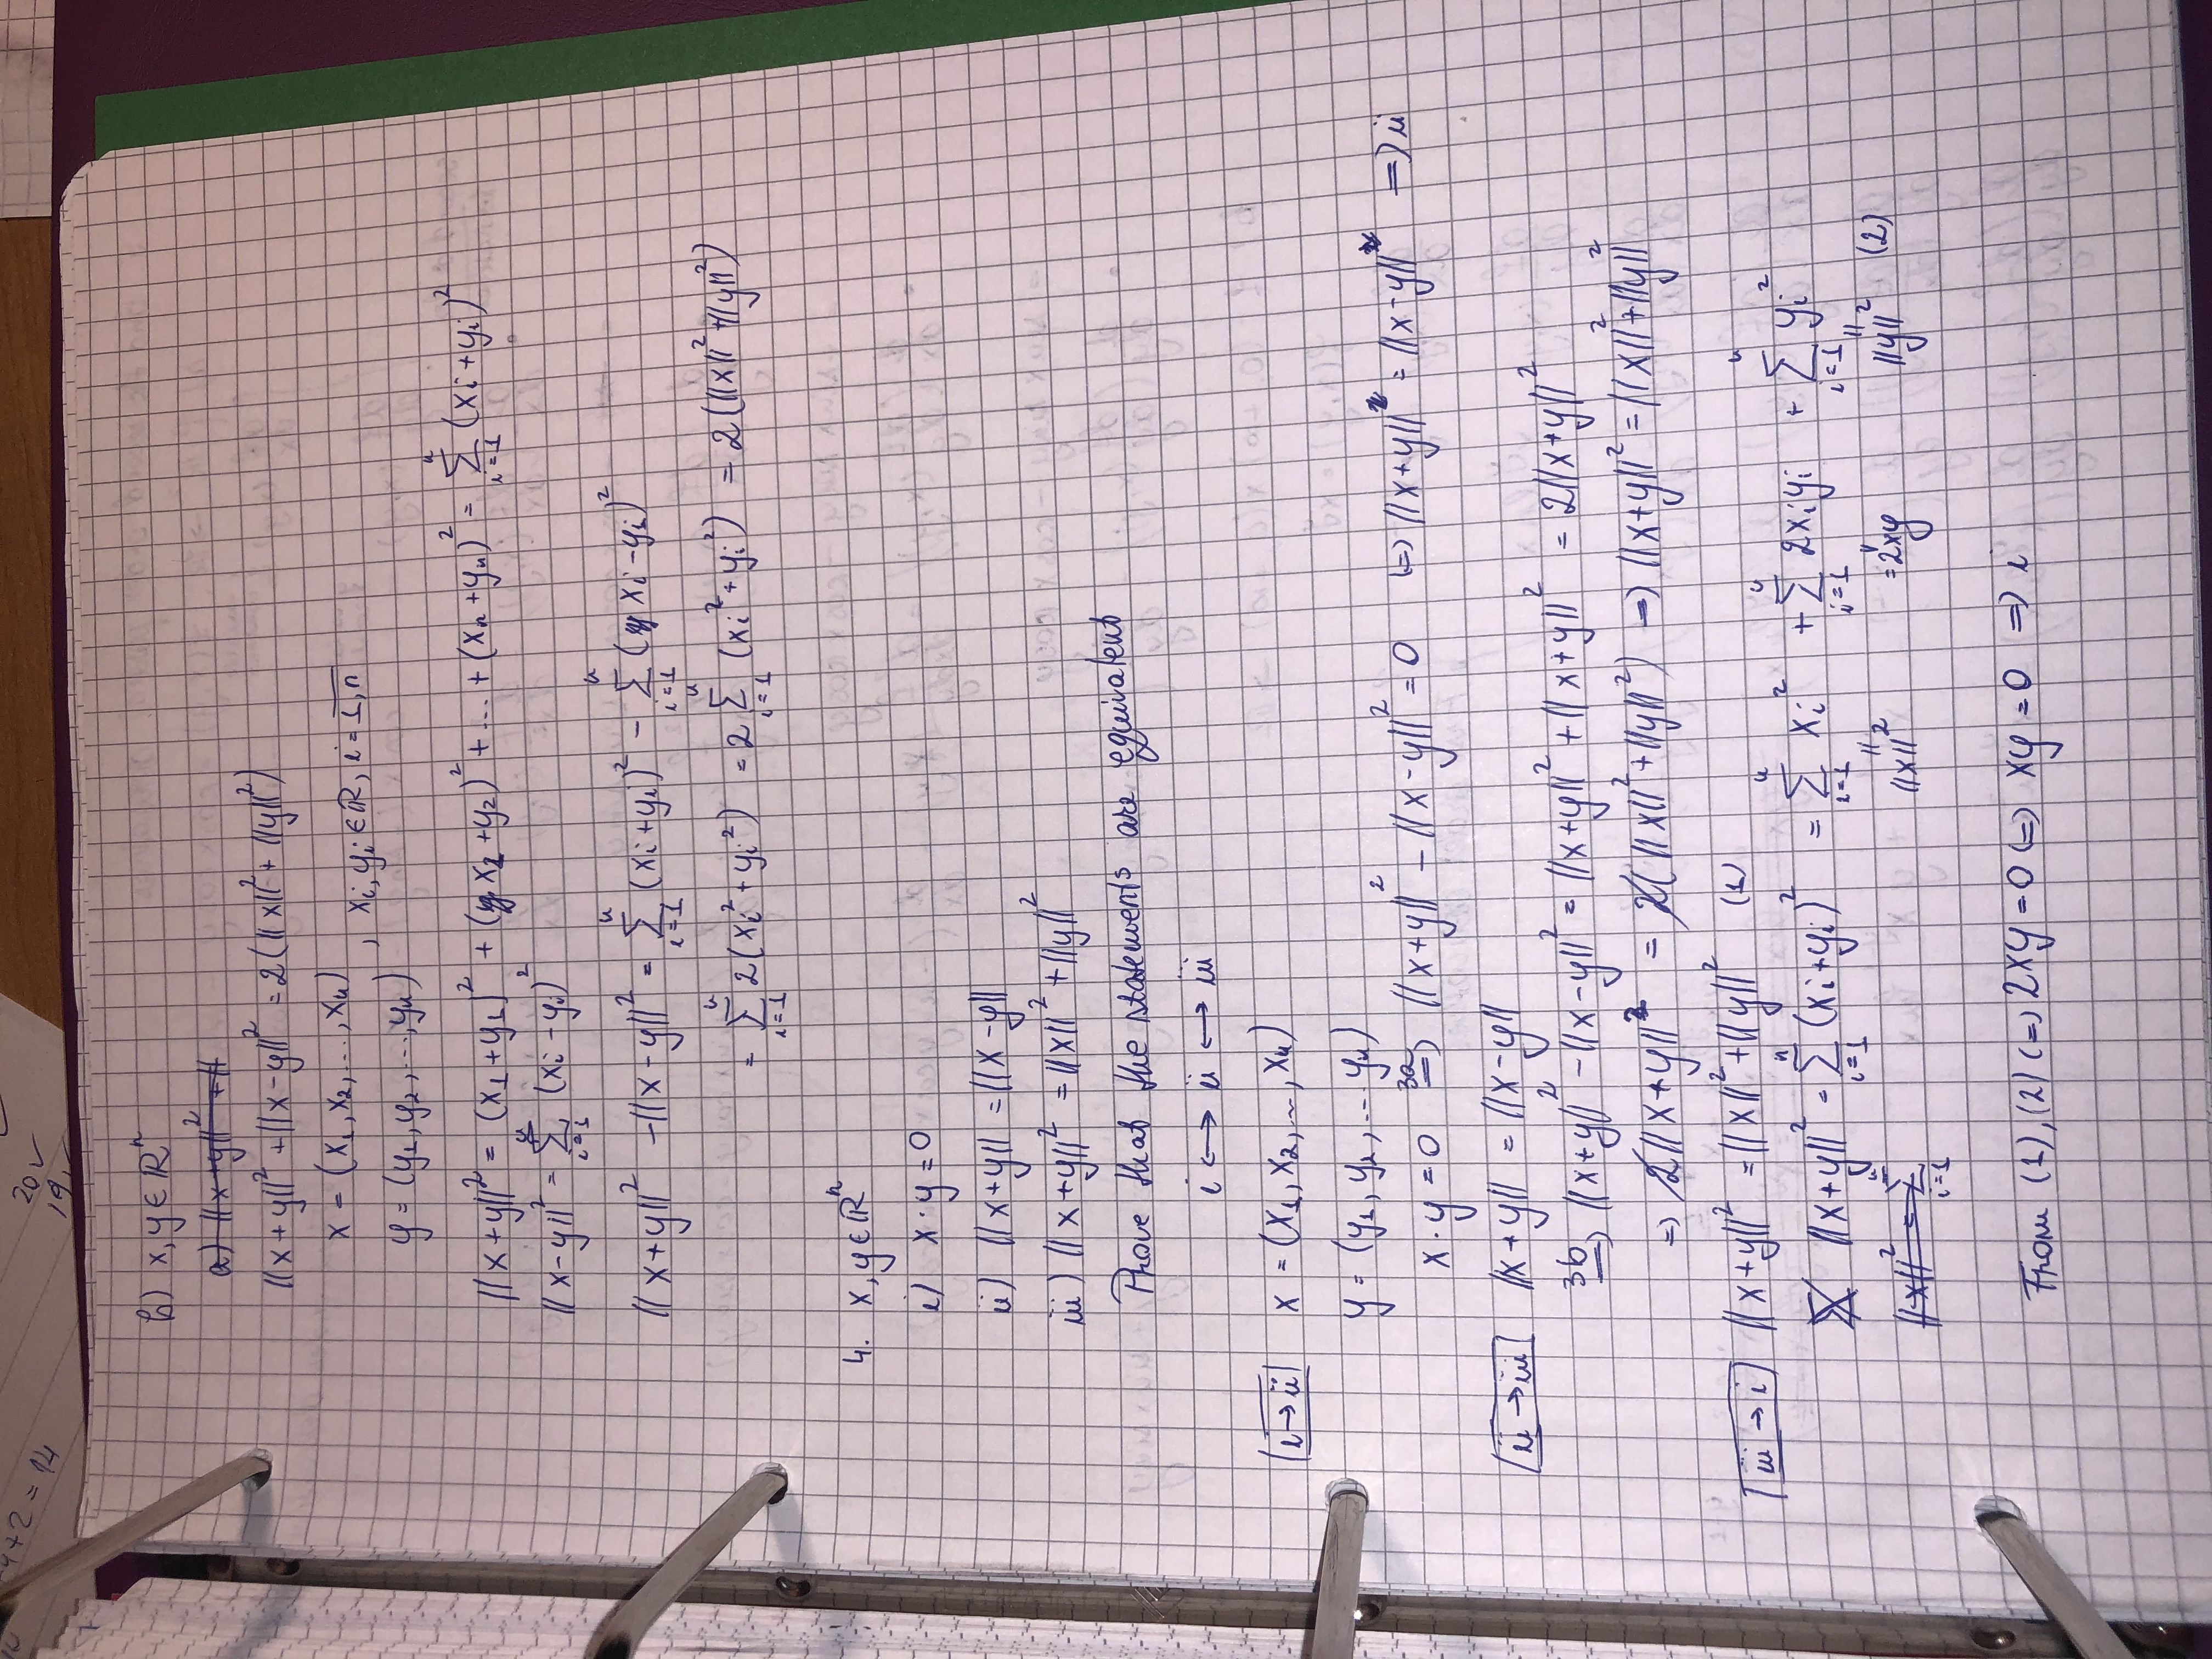 +2 = 14
20 ✓
19 ✓
b) x, y ∈ ℝⁿ
a) ||x+y||² + ||
||x+y||² + ||x-y||² = 2(||x||² + ||y||²)
x = (x₁, x₂, ..., xₙ)
, xᵢ, yᵢ ∈ ℝ, i = 1,n
y = (y₁, y₂, ..., yₙ)
||x+y||² = (x₁+y₁)² + (x₂+y₂)² + ... + (xₙ+yₙ)² = Σᵢ₌₁ⁿ (xᵢ+yᵢ)²
||x-y||² = Σᵢ₌₁ⁿ (xᵢ-yᵢ)²
||x+y||² - ||x-y||² = Σᵢ₌₁ⁿ (xᵢ+yᵢ)² - Σᵢ₌₁ⁿ (xᵢ-yᵢ)²
= Σᵢ₌₁ⁿ 2(xᵢ²+yᵢ²) = 2 Σᵢ₌₁ⁿ (xᵢ²+yᵢ²) = 2(||x||²+||y||²)
4. x, y ∈ ℝⁿ
i) x·y = 0
ii) ||x+y|| = ||x-y||
iii) ||x+y||² = ||x||² + ||y||²
Prove that the statements are equivalent
i ↔ ii ↔ iii
i → ii x = (x₁, x₂, ..., xₙ)
y = (y₁, y₂, ... yₙ)
x·y = 0 3a⇒ ||x+y||² - ||x-y||² = 0 (=) ||x+y|| = ||x-y|| ⇒ ii
ii → iii ||x+y|| = ||x-y||
3b⇒ ||x+y||² - ||x-y||² = ||x+y||² + ||x+y||² = 2||x+y||²
⇒ 2||x+y||² = 2(||x||²+||y||²) ⇒ ||x+y||² = ||x||²+||y||²
iii → i ||x+y||² = ||x||²+||y||² (1)
||x+y||² = Σᵢ₌₁ⁿ (xᵢ+yᵢ)² = Σᵢ₌₁ⁿ xᵢ² + Σᵢ₌₁ⁿ 2xᵢyᵢ + Σᵢ₌₁ⁿ yᵢ²
||x||² = Σᵢ₌₁ⁿ || ||x||² = 2xy || ||y||² (2)
From (1), (2) (=) 2xy = 0 (=) xy = 0 ⇒ i